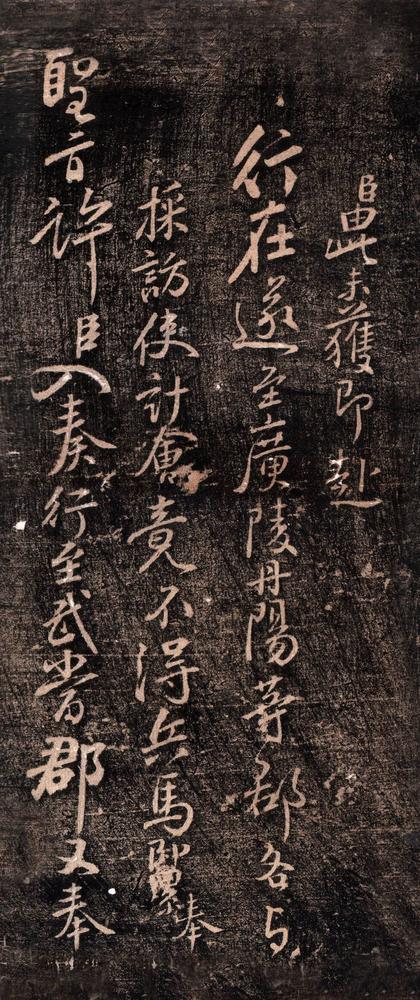 臣由此未獲即赴
行在遂至廣陵丹陽等郡各与
採訪使計會竟不得兵馬奉
聖旨許臣入奏行至武當郡又奉